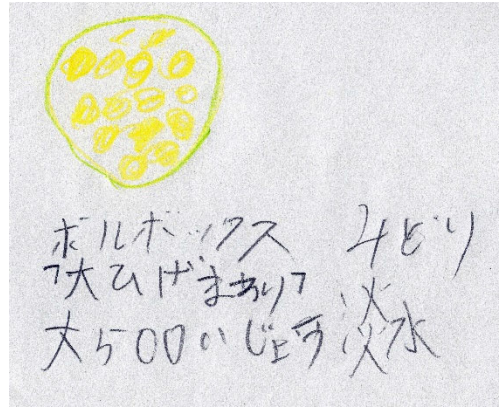 ボルボックス みどり
「大ひげまわり」
大500いじょう 淡水